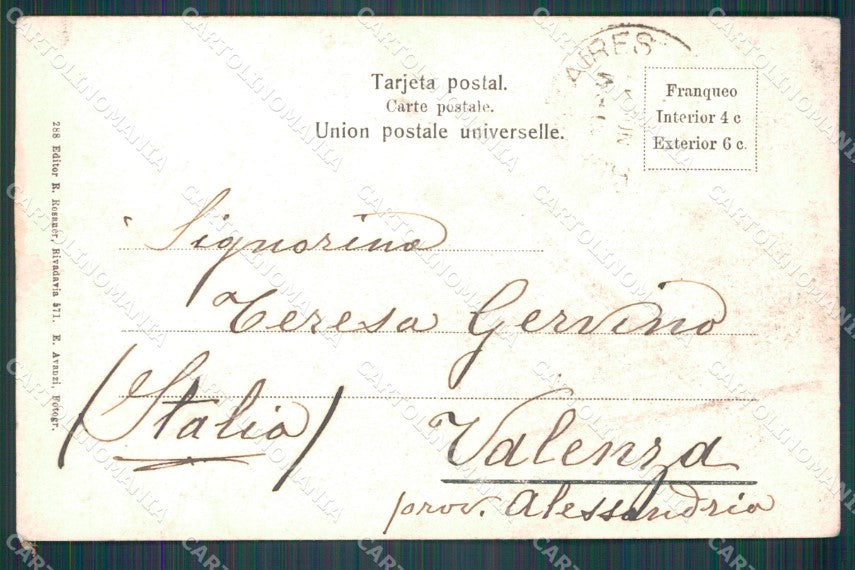 AIRES
Tarjeta postal.
Carte postale.
Union postale universelle.
Franqueo
Interior 4 c
Exterior 6 c.
288 Editor R. Rosauer, Rivadavia 571. E. Avanzi, Fotogr.
Signorina
Teresa Gervino
(Italia)
Valenza
prov. Alessandria
CARTOLINOMANIA